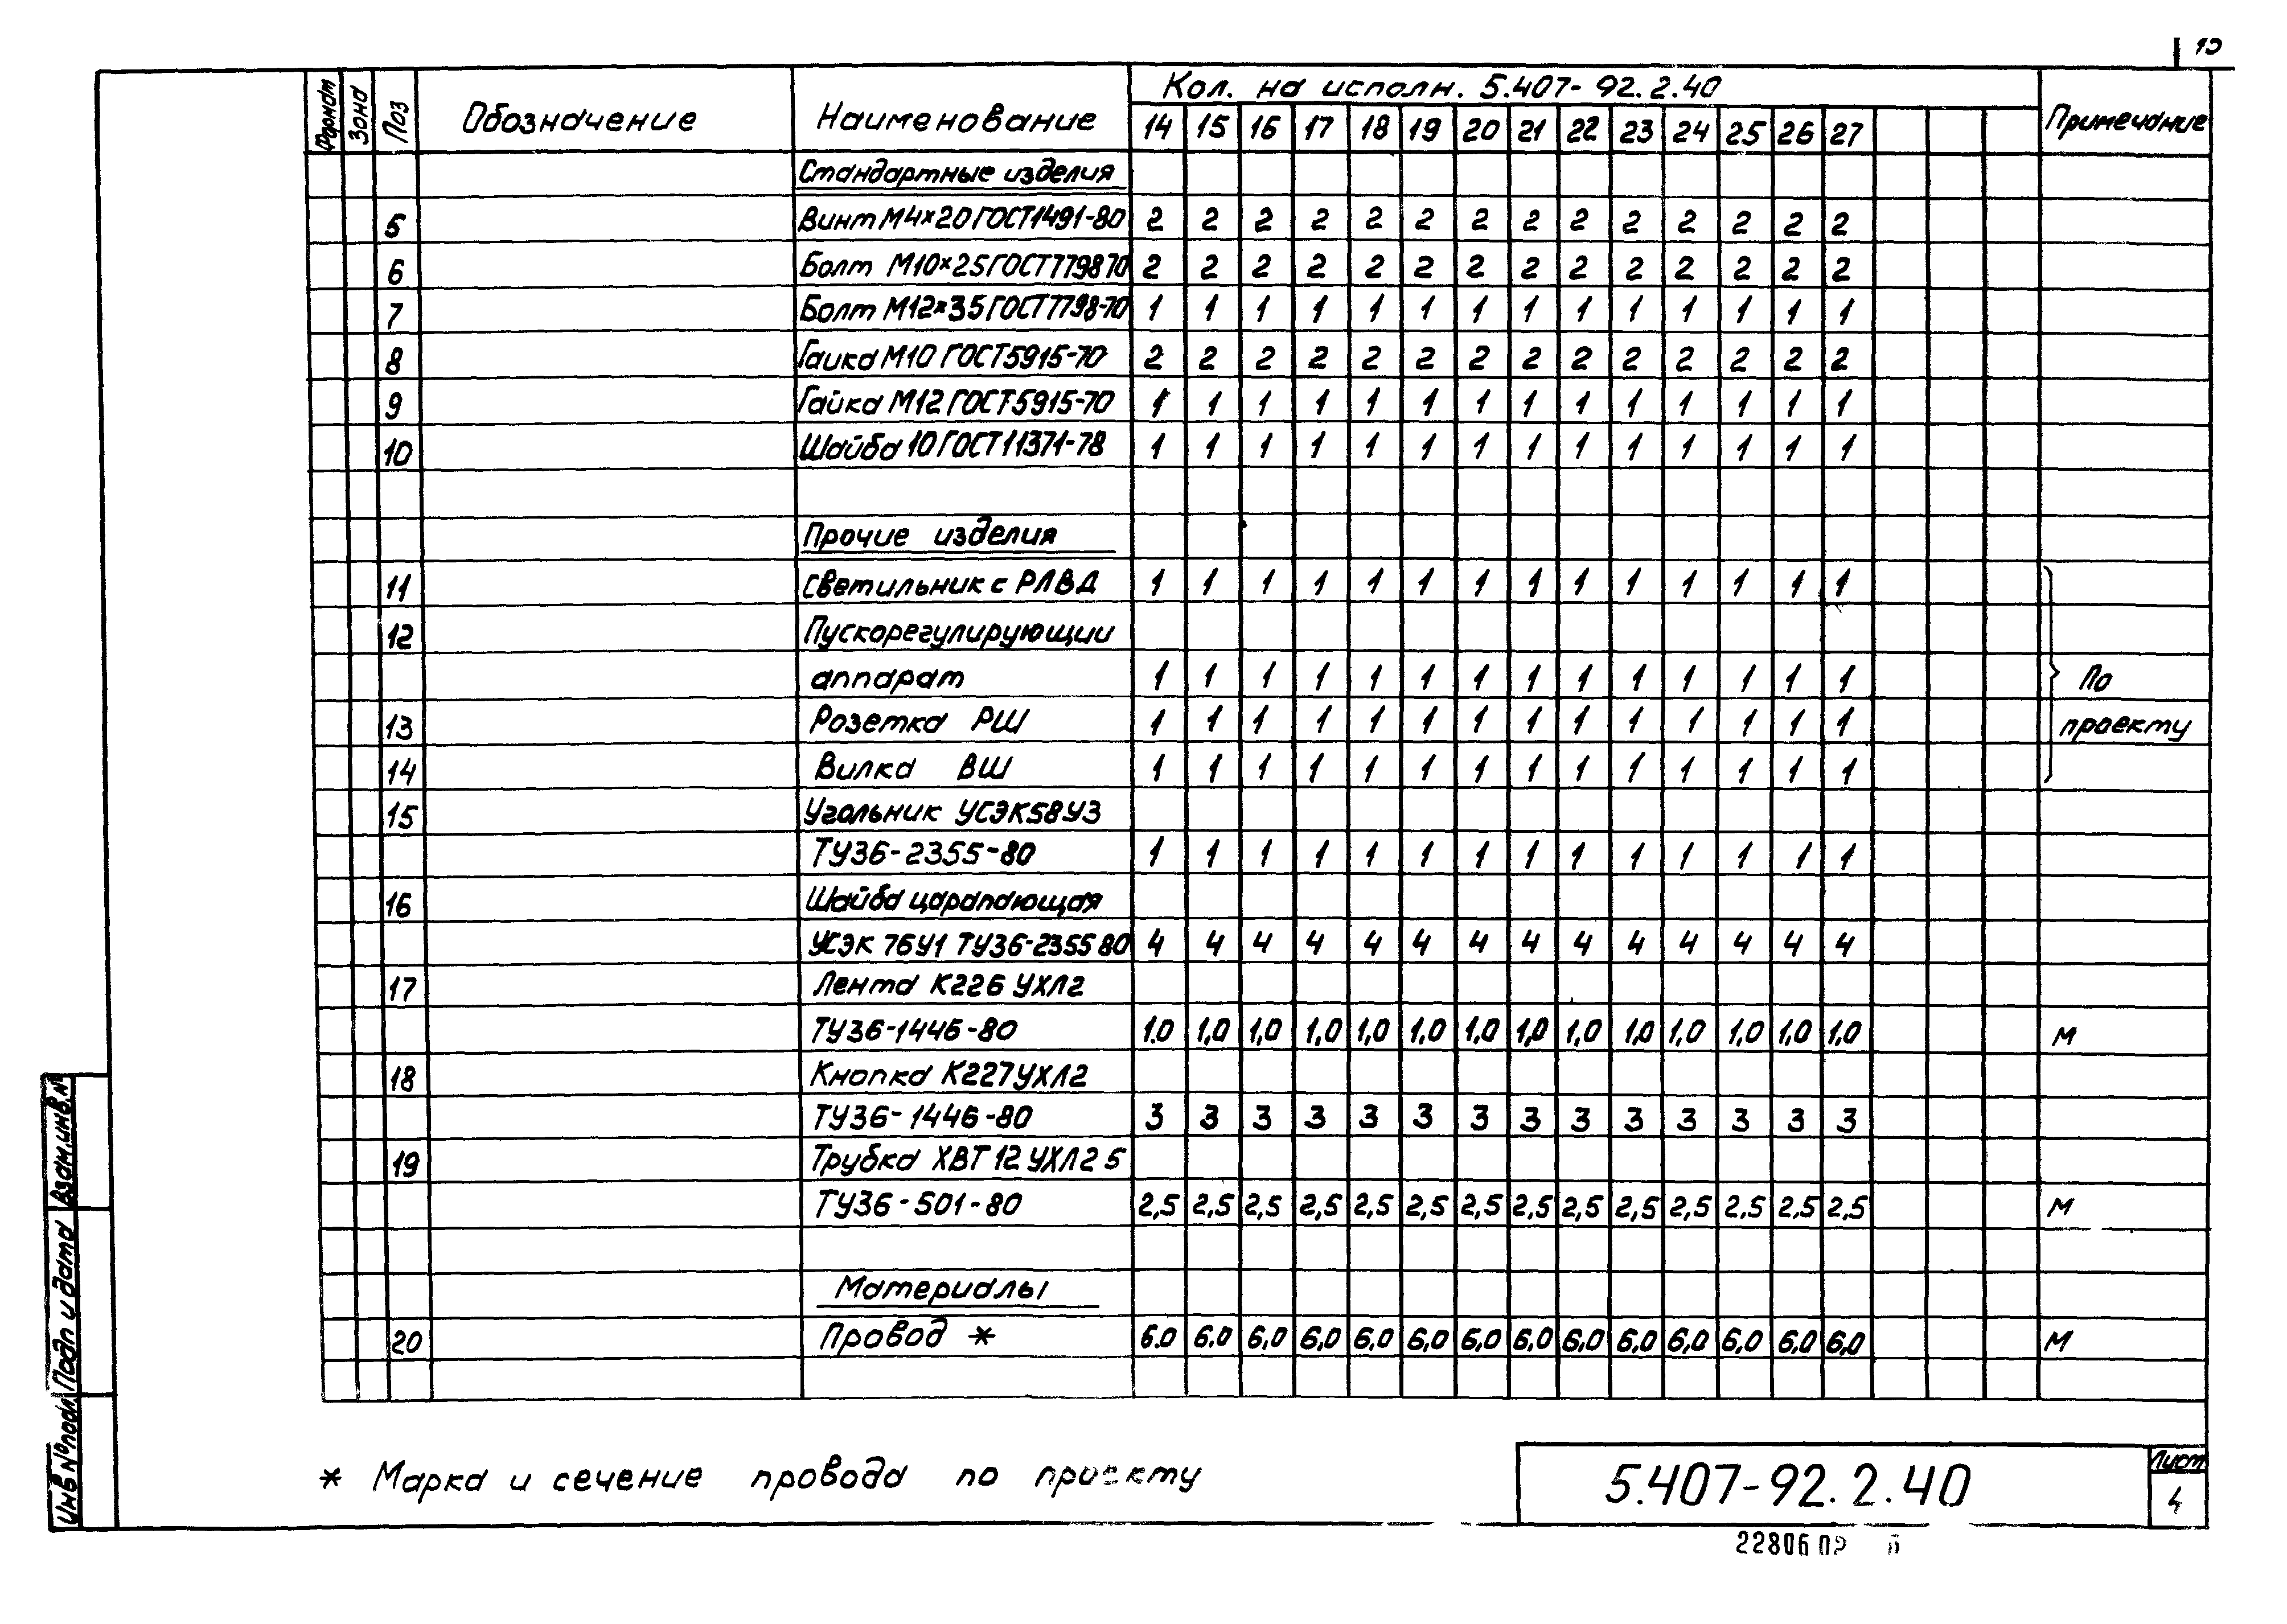 Формат Зона Поз Обозначение Наименование Кол. на исполн. 5.407-92.2.40 Примечание
14 15 16 17 18 19 20 21 22 23 24 25 26 27
Стандартные изделия
5 Винт М4×20 ГОСТ1491-80 2 2 2 2 2 2 2 2 2 2 2 2 2 2
6 Болт М10×25 ГОСТ7798 70 2 2 2 2 2 2 2 2 2 2 2 2 2 2
7 Болт М12×35 ГОСТ7798-70 1 1 1 1 1 1 1 1 1 1 1 1 1 1
8 Гаика М10 ГОСТ5915-70 2 2 2 2 2 2 2 2 2 2 2 2 2 2
9 Гайка М12 ГОСТ5915-70 1 1 1 1 1 1 1 1 1 1 1 1 1 1
10 Шайба 10 ГОСТ11371-78 1 1 1 1 1 1 1 1 1 1 1 1 1 1
Прочие изделия
11 Светильник с РЛВД 1 1 1 1 1 1 1 1 1 1 1 1 1 1
12 Пускорегулирующии
аппарат 1 1 1 1 1 1 1 1 1 1 1 1 1 1 По
13 Розетка РШ 1 1 1 1 1 1 1 1 1 1 1 1 1 1 проекту
14 Вилка ВШ 1 1 1 1 1 1 1 1 1 1 1 1 1 1
15 Угольник УСЭК58У3
ТУ36-2355-80 1 1 1 1 1 1 1 1 1 1 1 1 1 1
16 Шайба царапающая
УСЭК 76У1 ТУ36-2355 80 4 4 4 4 4 4 4 4 4 4 4 4 4 4
17 Лента К226 УХЛ2
ТУ36-1446-80 1.0 1,0 1,0 1,0 1,0 1.0 1.0 1,0 1,0 1,0 1,0 1,0 1,0 1,0 м
18 Кнопка К227УХЛ2
ТУ36-1446-80 3 3 3 3 3 3 3 3 3 3 3 3 3 3
19 Трубка ХВТ 12 УХЛ2 5
ТУ36-501-80 2,5 2,5 2,5 2,5 2,5 2,5 2,5 2,5 2,5 2,5 2,5 2.5 2,5 2,5 м
Материалы
20 Провод * 6.0 6.0 6,0 6,0 6,0 6,0 6,0 6,0 6,0 6,0 6,0 6,0 6,0 6,0 м
* Марка и сечение провода по проекту
5.407-92.2.40
Лист
4
22806 02
Инв № подл. Подп и дата Взам.инв.№